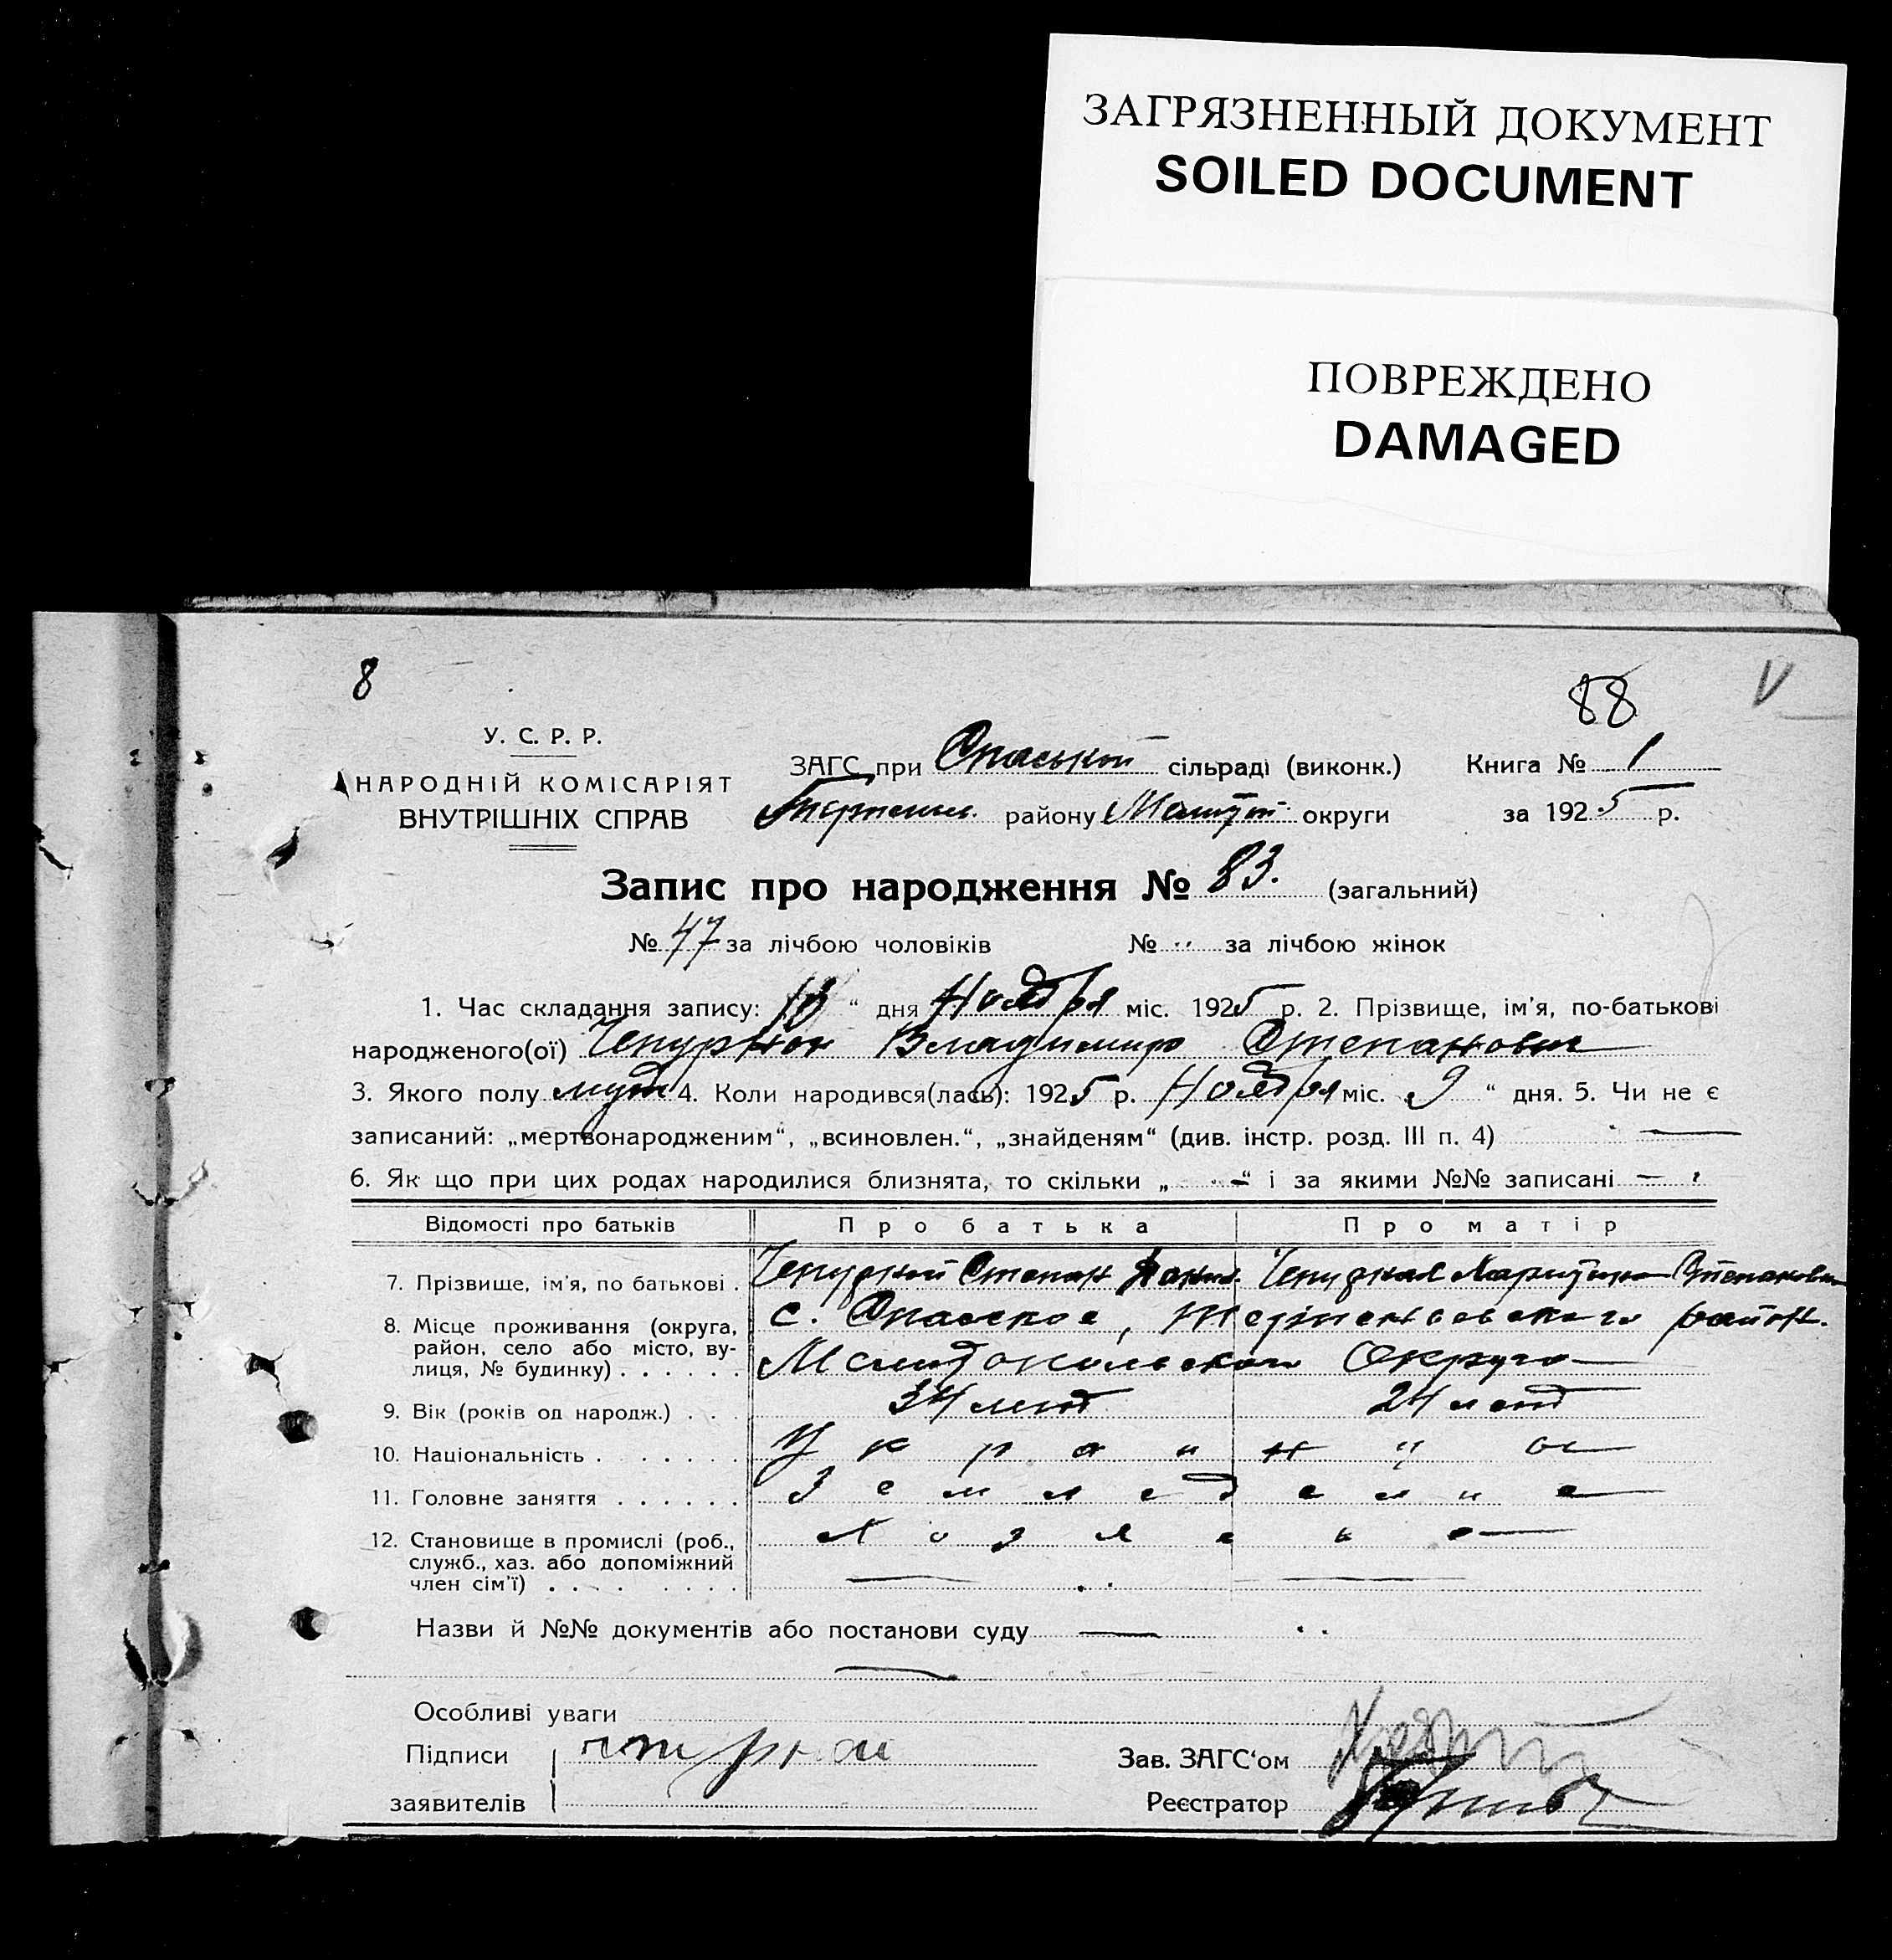 ЗАГРЯЗНЕННЫЙ ДОКУМЕНТ
SOILED DOCUMENT
ПОВРЕЖДЕНО
DAMAGED
8
88
V
У. С. Р. Р.
НАРОДНІЙ КОМІСАРІЯТ
ВНУТРІШНІХ СПРАВ
ЗАГС при Спаській сільраді (виконк.) Книга № 1
Терпеньн. району Меліт. округи за 1925 р.
Запис про народження № 83. (загальний)
№ 47 за лічбою чоловіків № " за лічбою жінок
1. Час складання запису: 13 “ дня Ноября міс. 1925 р. 2. Прізвище, ім’я, по-батькові
народженого(ої) Чепурной Владимир Степанович
3. Якого полу муж 4. Коли народився(лась): 1925 р. Ноября міс. 9 “ дня. 5. Чи не є
записаний: „мертвонародженим“, „всиновлен.“, „знайденям“ (див. інстр. розд. III п. 4) —
6. Як що при цих родах народилися близнята, то скільки „ — “ і за якими №№ записані —
Відомості про батьків Про батька Про матір
7. Прізвище, ім’я, по батькові . Чепурной Степан Чепурная Степановна
8. Місце проживання (округа, район, село або місто, вулиця, № будинку) . . . . . . с. Спаское, Терпеньевского район.
Мелитопольского Округа
9. Вік (років од народж.) . . . 34 лет 24 лет
10. Національність . . . . . . . Украинцы
11. Головне заняття . . . . . . Земледелие
12. Становище в промислі (роб., служб., хаз. або допоміжний член сім’ї) . . . . . . . . Хозяева
Назви й №№ документів або постанови суду —
Особливі уваги
Підписи
заявителів
Зав. ЗАГС‘ом
Реєстратор